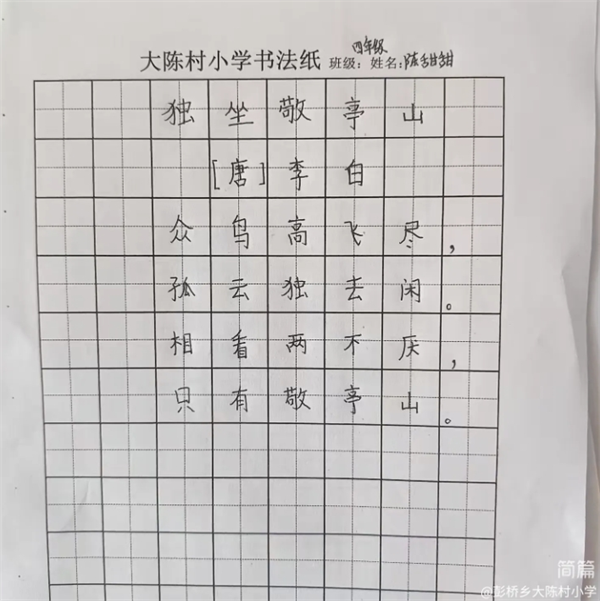 大陈村小学书法纸 班级：四年级 姓名：陈甜甜
独坐敬亭山
[唐]李白
众鸟高飞尽，
孤云独去闲。
相看两不厌，
只有敬亭山。
简篇
@彭桥乡大陈村小学